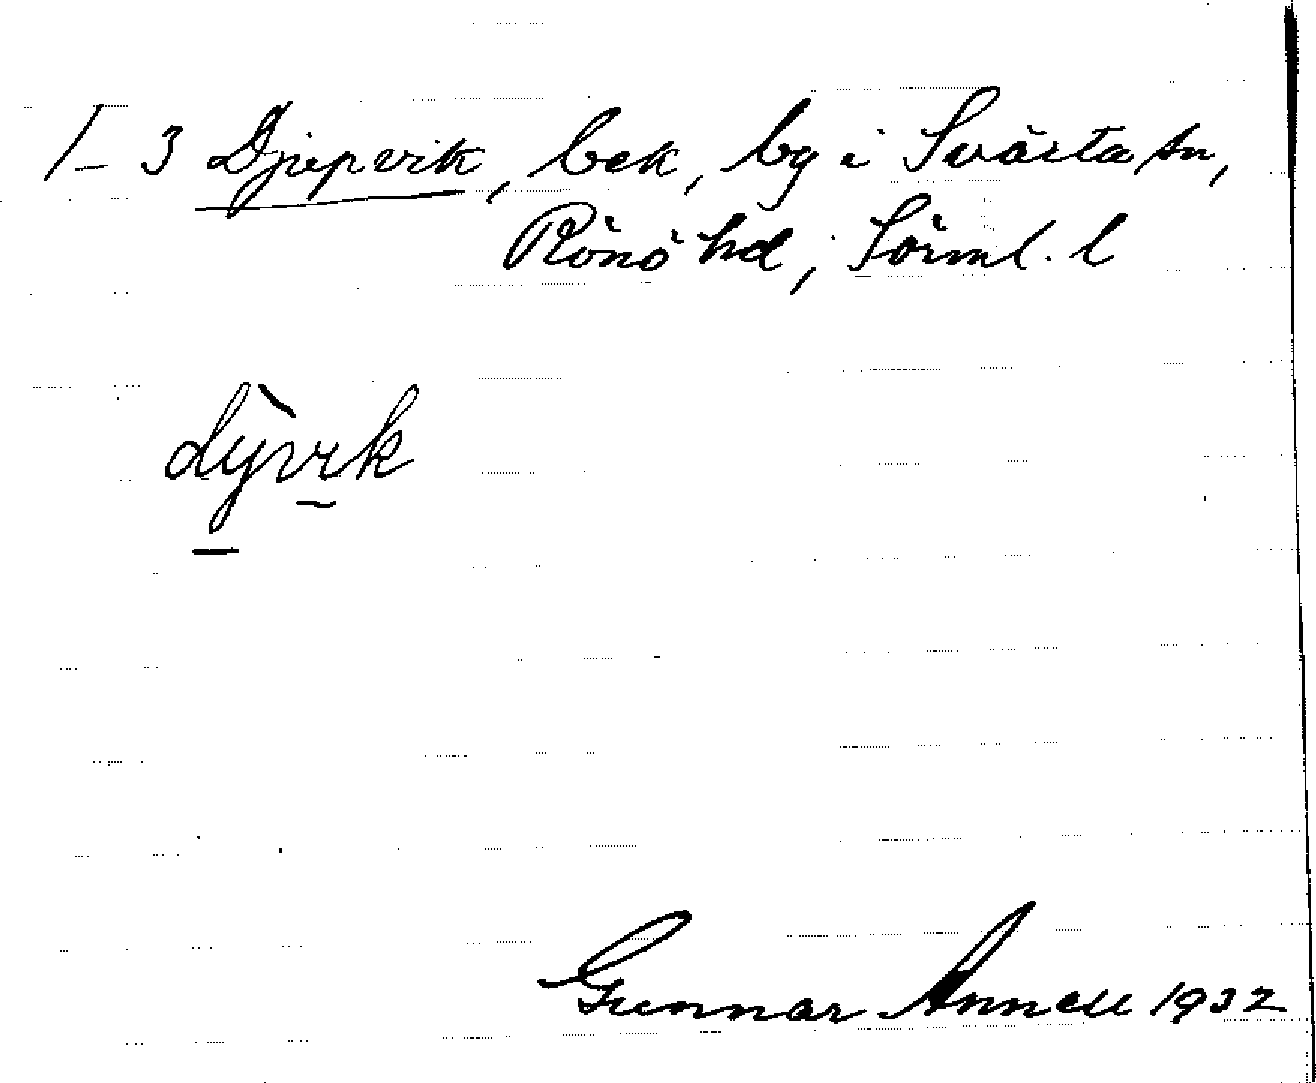 1-3 Djupvik, bek, by i Svärta sn,
Rönö hd, Sörml. l
dỳ̠vi̠k
Gunnar Annell 1932